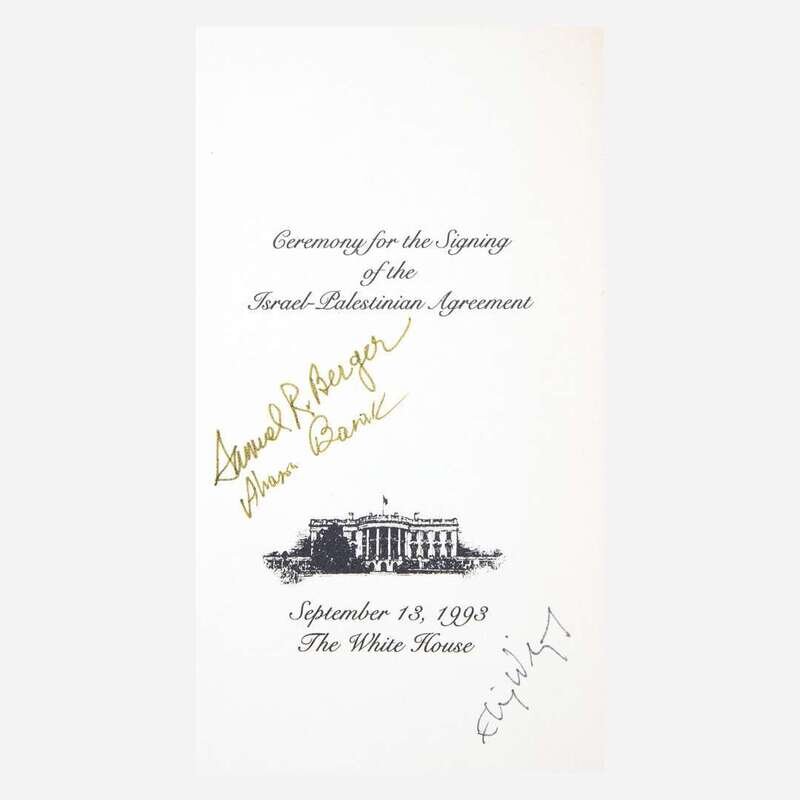 Ceremony for the Signing
of the
Israel-Palestinian Agreement
Samuel R. Berger
Aharon Barak
September 13, 1993
The White House